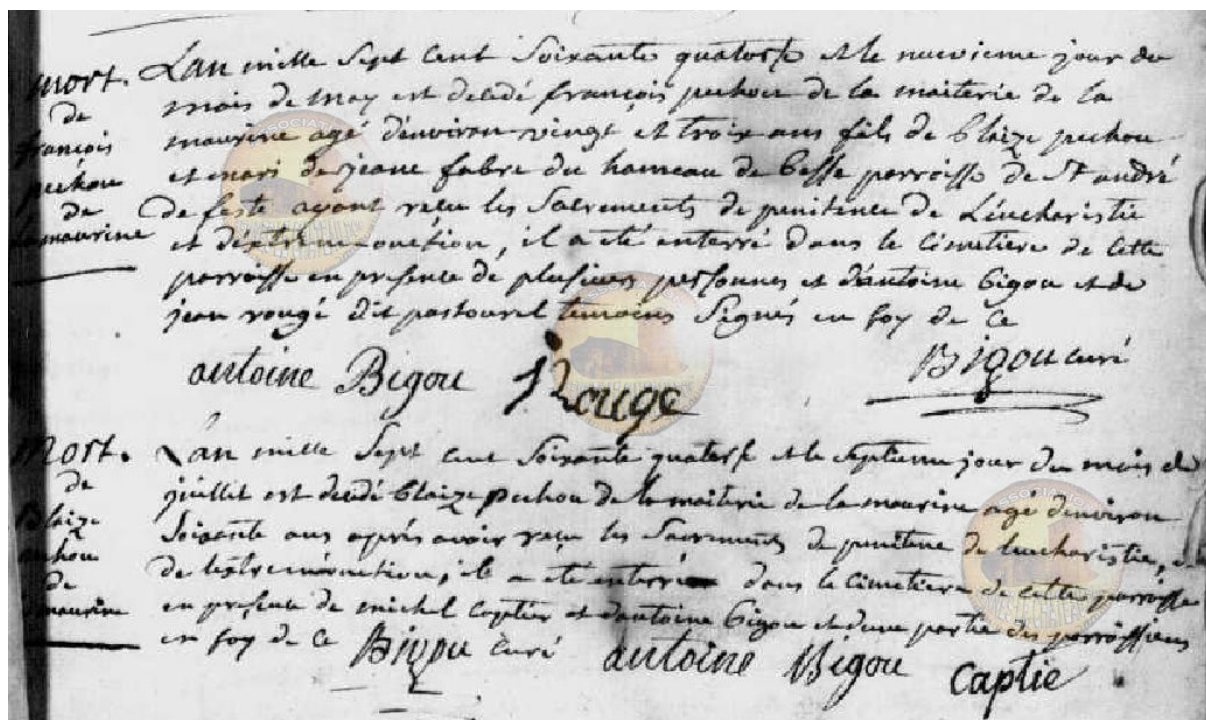 mort.
de
françois
puhou
de
la maurine
Lan mille Sept Cent Soixante quatorse et le neuvieme jour du
mois de may est dededé françois puhou de la maiterie de la
maurine agé d'environ vingt et trois ans fils de blaize puhou
et mari de jeane fabre du hameau de besse parroisse de St andré
de feste ayant reçu les Sacrements de penitence de L'eucharistie
et d'extremeonction, il a été enterré dans le Cimetiere de cette
parroisse en presence de plusieurs personnes et d'antoine bigou et de
jean rougé dit pastourel temoins Signés en foy de Ce
antoine Bigou Rouge Bigou curé
Mort.
de
Blaize
puhou
de
la maurine
Lan mille Sept cent Soixante quatorse et le septieme jour du mois de
juillet est dededé blaize puhou de la maiterie de la maurine agé d'environ
Soixante ans après avoir reçu les Sacrements de penitence de leucharistie, et
de lextremeonction, il a été enterré dans le Cimetiere de cette parroisse
en presence de michel captier et d'antoine bigou et d'une partie des parroissiens
en foy de Ce Bigou curé antoine Bigou Captie